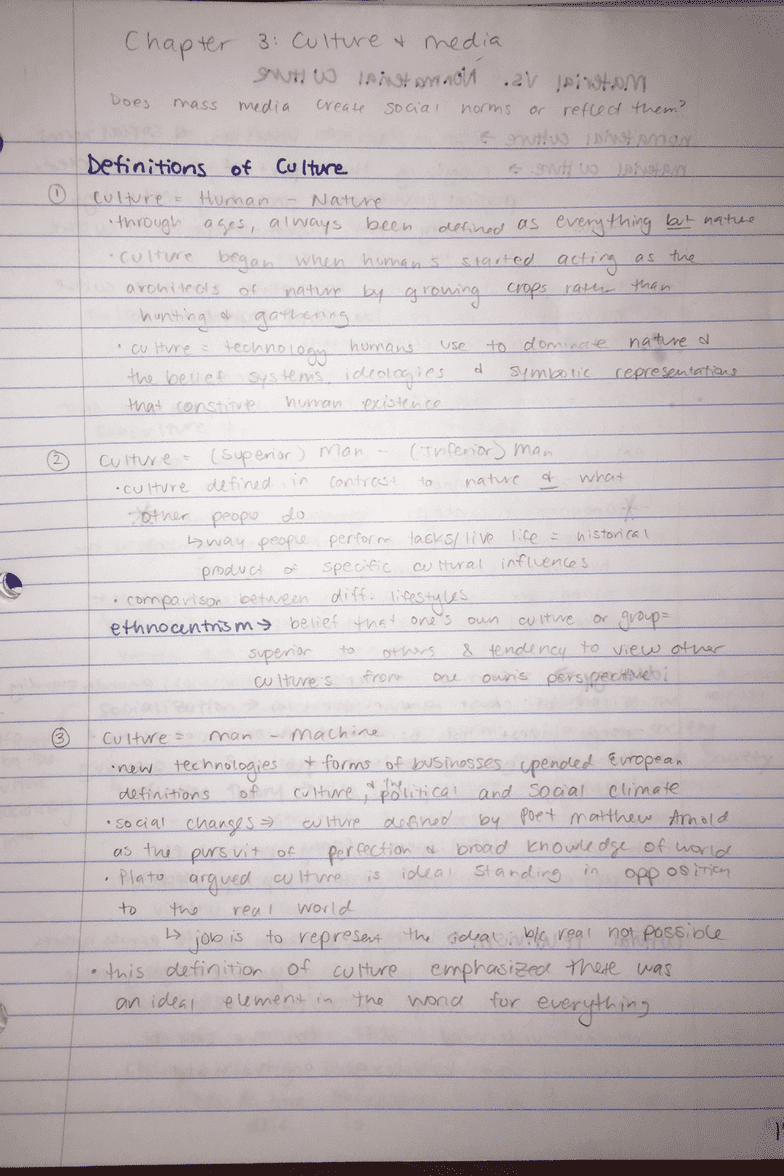 Chapter 3: Culture & media
Does mass media create social norms or reflect them?
Definitions of Culture
① Culture = Human - Nature
• through ages, always been defined as everything but nature
• culture began when humans started acting as the
architects of nature by growing crops rather than
hunting & gathering
• culture = technology humans use to dominate nature &
the belief systems, ideologies & symbolic representations
that constitute human existence
② Culture = (Superior) Man - (Inferior) Man
• culture defined in contrast to nature & what
other people do
↳ way people perform tasks/live life = historical
product of specific cultural influences
• comparison between diff. lifestyles
ethnocentrism → belief that one's own culture or group =
superior to others & tendency to view other
culture's from one own's perspective
③ Culture = man - Machine
• new technologies & forms of businesses upended European
definitions of culture, & the political and social climate
• social changes ⇒ culture defined by poet matthew Arnold
as the pursuit of perfection & broad knowledge of world
• Plato argued culture is ideal standing in opposition
to the real world
↳ job is to represent the ideal b/c real not possible
• this definition of culture emphasized there was
an ideal element in the world for everything